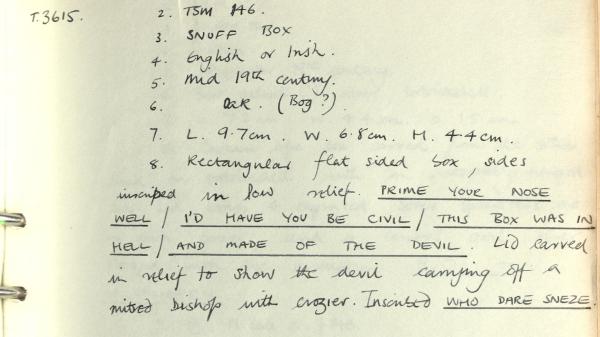 T.3615.
2. TSM 146.
3. SNUFF BOX
4. English or Irish.
5. Mid 19th century.
6. OAK. (Bog?).
7. L. 9.7cm. W. 6.8cm. H. 4.4cm.
8. Rectangular flat sided box, sides
inscribed in low relief. PRIME YOUR NOSE
WELL / I'D HAVE YOU BE CIVIL / THIS BOX WAS IN
HELL / AND MADE OF THE DEVIL. Lid carved
in relief to show the devil carrying off a
mitred bishop with crozier. Inscribed WHO DARE SNEZE.